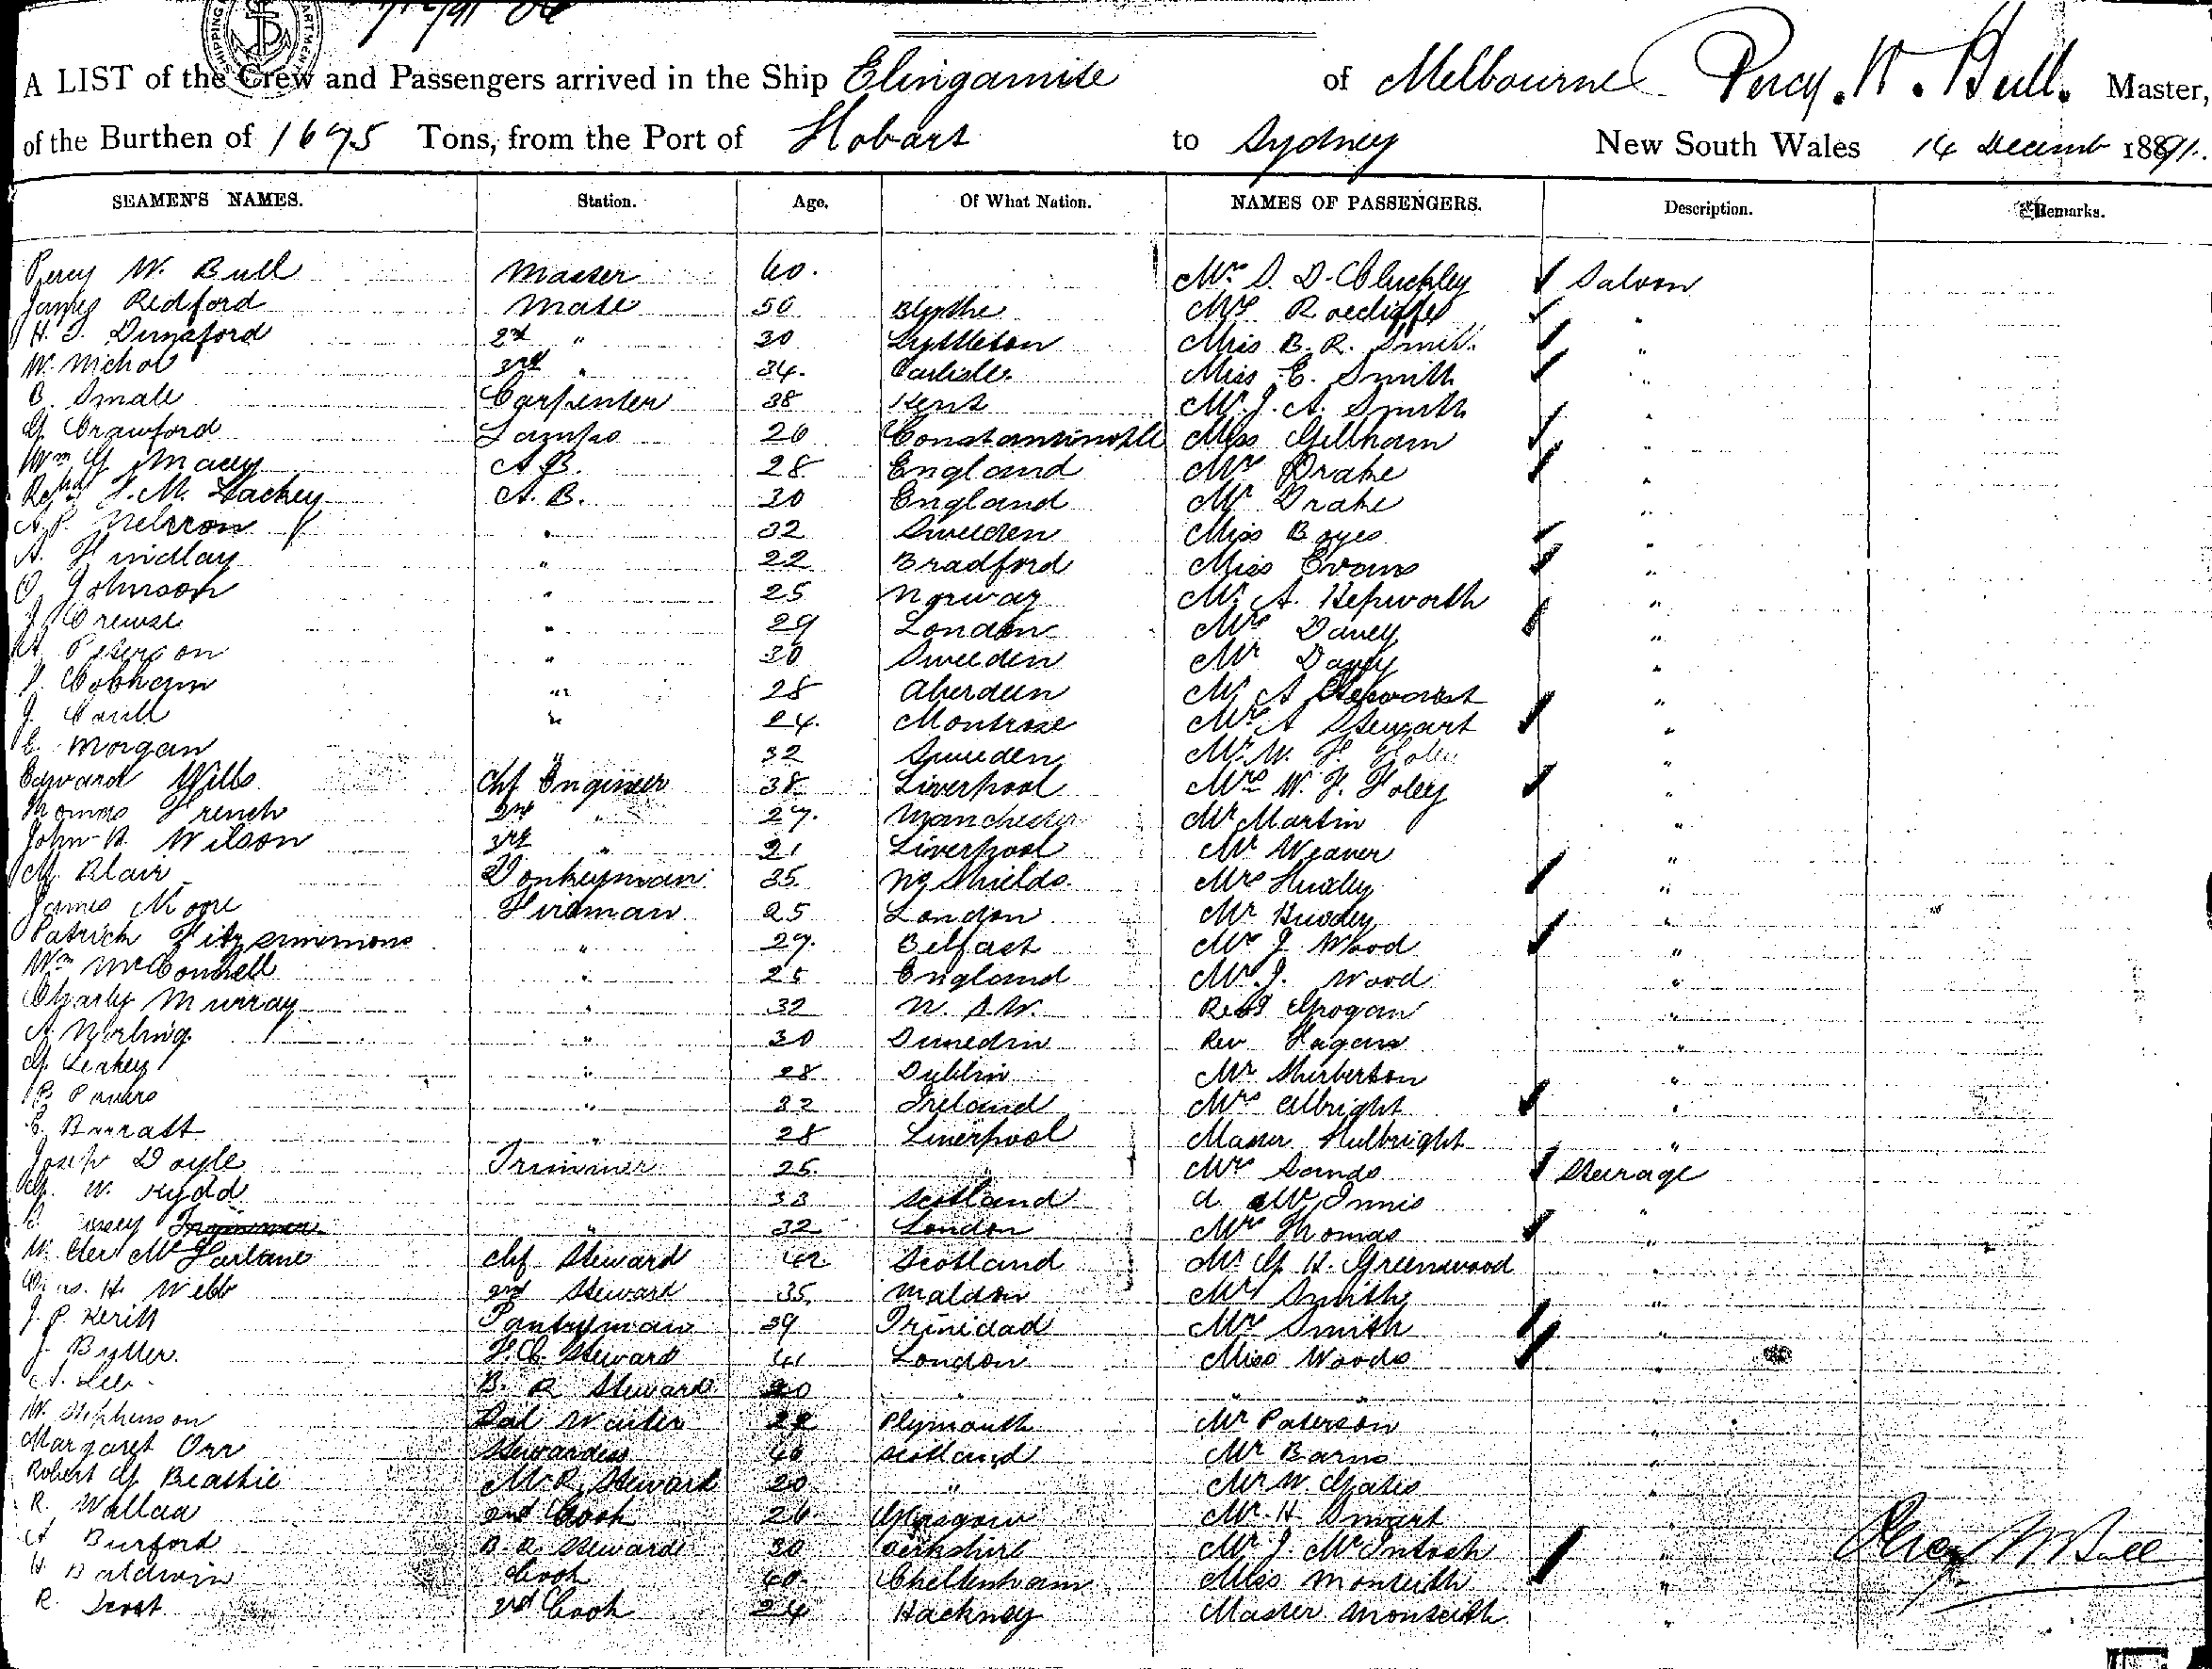 SHIPPING DEPARTMENT
A LIST of the Crew and Passengers arrived in the Ship Elingamite of Melbourne Percy. W. Bull. Master,
of the Burthen of 1675 Tons, from the Port of Hobart to Sydney New South Wales 14 Decemb 1891.
SEAMEN'S NAMES. Station. Age. Of What Nation. NAMES OF PASSENGERS. Description. Remarks.
Percy W. Bull Master 40. Saloon
James Redford Mate 50 Blythe Mrs "
H. J. Dunsford 2nd " 30 Lyttleton Miss B. R. Smith "
W. Nichol 3rd " 34. Carlisle. Miss E. Smith "
B. Smale Carpenter 38 Kent Mr. J. A. Smith "
G Crawford Lamps 26 Constantinople Miss Gillham "
Wm G Macey A.B. 28 England Mrs Drake "
J. M. Lackey A. B. 30 England Mr Drake "
A. P. " 32 Sweeden Miss Boyes "
A. Findlay " 22 Bradford Miss Evans "
O Johnson " 25 Norway Mr A. Hepworth "
J Crewse " 29 London Mrs Davey "
A Peterson " 30 Sweeden Mr Davey "
Cobham " 28 Aberdeen Mr A "
J. Cavill " 24. Montrose Mrs A Stewart "
E. Morgan " 32 Sweeden Mr W. F. Foley "
Edward Wills Chf Engineer 38 Liverpool Mrs W. F. Foley "
Thomas French 2nd " 27. Manchester Mr Martin "
John H Wilson 3rd " 21 Liverpool Mr Weaver "
M. Blair Donkeyman 35 No Shields Mrs Huxley "
James Moore Fireman 25 London Mr Huxley "
Patrick Fitzsimmons " 27. Belfast Mrs J. Wood "
Wm McConnell " 25 England Mr. J. Wood "
Charly Murray " 32 N. S. W. Grogan "
A. " 30 Dunedin Rev Fagan "
G Leahey " 28 Dublin Mr "
P Powers " 32 Ireland Mrs Albright "
E. Barratt " 28 Liverpool Master "
Joseph Doyle Trimmer 25. Mrs Sands Steerage
G. W. Kydd 33 Scotland McInnis "
Trimmer " 32 London Mrs Thomas "
W. McFarlane Chf Steward 42 Scotland Mr G H. Greenwood "
H. Webb 2nd Steward 35 Maldon Mr Smith "
J. P. Pantryman 39 Trinidad Mrs Smith "
J. F. C. Steward 41 London Miss Woods "
Lee B. R Steward 20 " " " "
W. Stephenson Waiter Plymouth Mr Paterson "
Margaret Orr Stewardess 40 Scotland Mr Barns "
Robert G Beattie M. R. Steward 20 " Mr W. Gates "
R. Wallace 2nd Cook 26 Glasgow Mr. H. Smart "
A Burford B. R Steward 30 Berkshire Mr J. McIntosh "
H Baldwin Cook 40 Cheltenham Miss Monteith "
R. Frost 3rd Cook 24 Hackney Master Monteith "
Percy W Bull